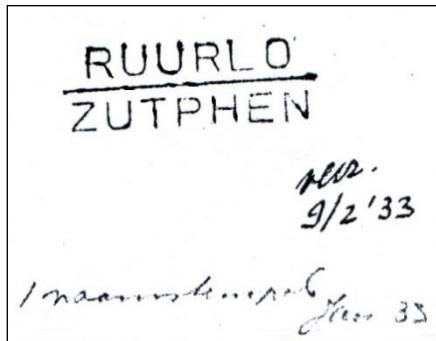 RUURLO
ZUTPHEN
verz.
9/2 '33
1 naamstempel
Jan 33